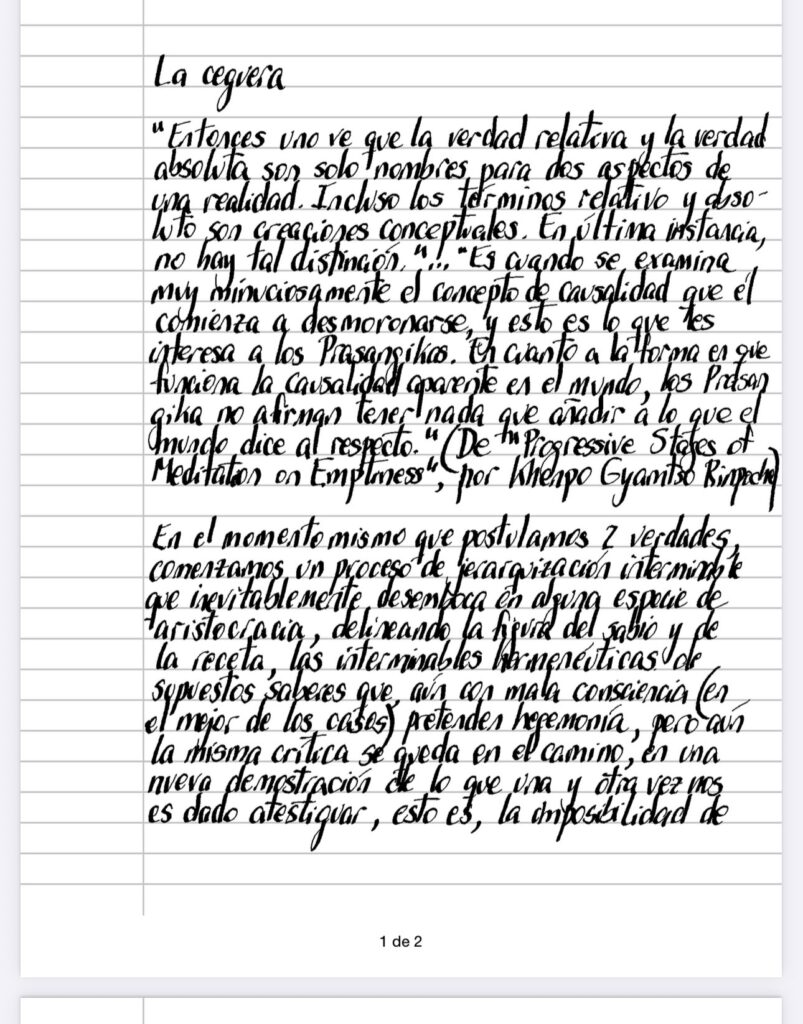 La ceguera
"Entonces uno ve que la verdad relativa y la verdad
absoluta son solo nombres para dos aspectos de
una realidad. Incluso los términos relativo y abso-
luto son creaciones conceptuales. En última instancia,
no hay tal distinción."... "Es cuando se examina
muy minuciosamente el concepto de causalidad que él
comienza a desmoronarse, y esto es lo que les
interesa a los Prasangikas. En cuanto a la forma en que
funciona la causalidad aparente en el mundo, los Prasan
gika no afirman tener nada que añadir a lo que el
mundo dice al respecto." (De "Progressive Stages of
Meditation on Emptiness", por Khenpo Gyamtso Rinpoche)
En el momento mismo que postulamos 2 verdades,
comenzamos un proceso de jerarquización interminable
que inevitablemente desemboca en alguna especie de
aristocracia, delineando la figura del sabio y de
la receta, las interminables hermenéuticas de
supuestos saberes que, aún con mala consciencia (en
el mejor de los casos) pretenden hegemonía, pero aún
la misma crítica se queda en el camino, en una
nueva demostración de lo que una y otra vez nos
es dado atestiguar, esto es, la imposibilidad de
1 de 2